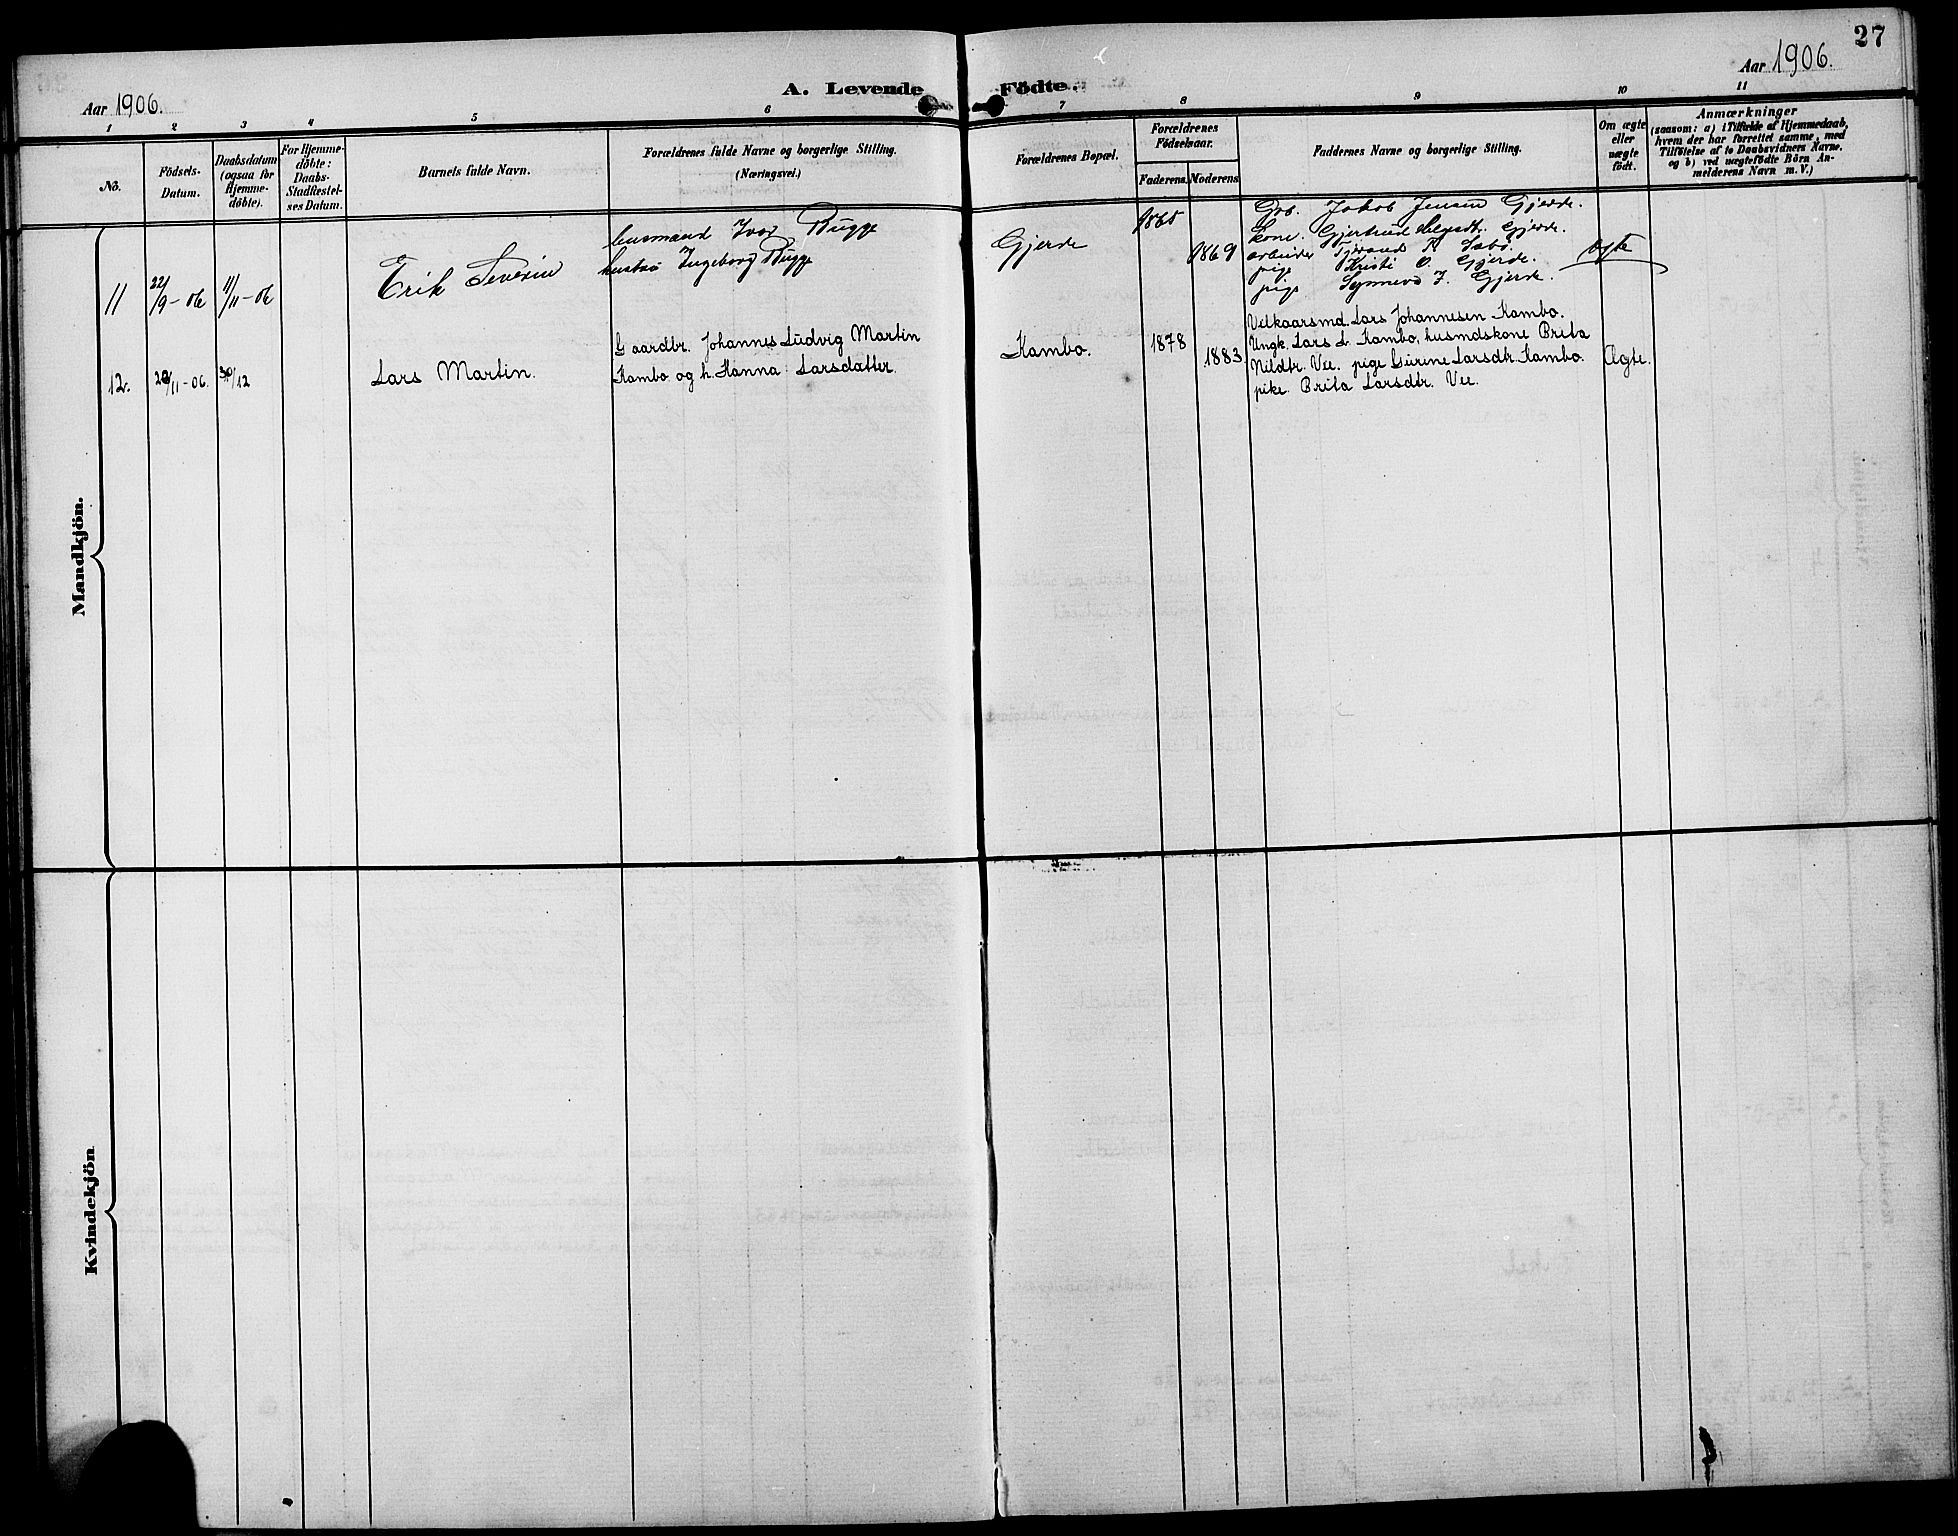 27
Aar 1906.
A. Levende Födte.
Aar 1906.
1 2 3 4 5 6 7 8 9 10 11
No.
Födsels-
Datum.
Daabsdatum
(ogsaa for
Hjemme-
döbte).
For Hjemme-
döbte:
Daabs-
Stadfæstel-
ses Datum.
Barnets fulde Navn.
Forældrenes fulde Navne og borgerlige Stilling.
(Næringsvei.)
Forældrenes Bopæl.
Forældrenes
Födselsaar.
Faderens. Moderens.
Faddernes Navne og borgerlige Stilling.
Om ægte
eller
uægte
födt.
Anmærkninger
(saasom: a) i Tilfælde af Hjemmedaab,
hvem der har forrettet samme, med
Tilföielse af to Daabsvidners Navne.
og b) ved uægtefödte Börn An-
melderens Navn m. V.)
Mandkjön.
11
22/9-06
11/11-06
Erik Severin
husmand Ivar Bugge
hustru Ingeborg Bugge
Gjerde
1869
Grb. Jakob Jensen Gjerde.
kone. Gjertrud Gjerde.
arbeider Sæbö.
pige Kristi O. Gjerde.
pige Synneva J. Gjerde.
ægte
12.
/11-06.
30/12
Lars Martin.
Gaardbr. Johannes Ludvig Martin
Kambo og h. Hanna Larsdatter.
Kambo.
1878
1883
Velkaarsmd. Lars Johannesen Kambo.
Ungk. Lars L. Kambo, husmdskone Brita
Nildtr. Vee. pige Gurine Larsdtr. Kambo.
pike. Brita Larsdtr. Vee.
Ægte.
Kvindekjön